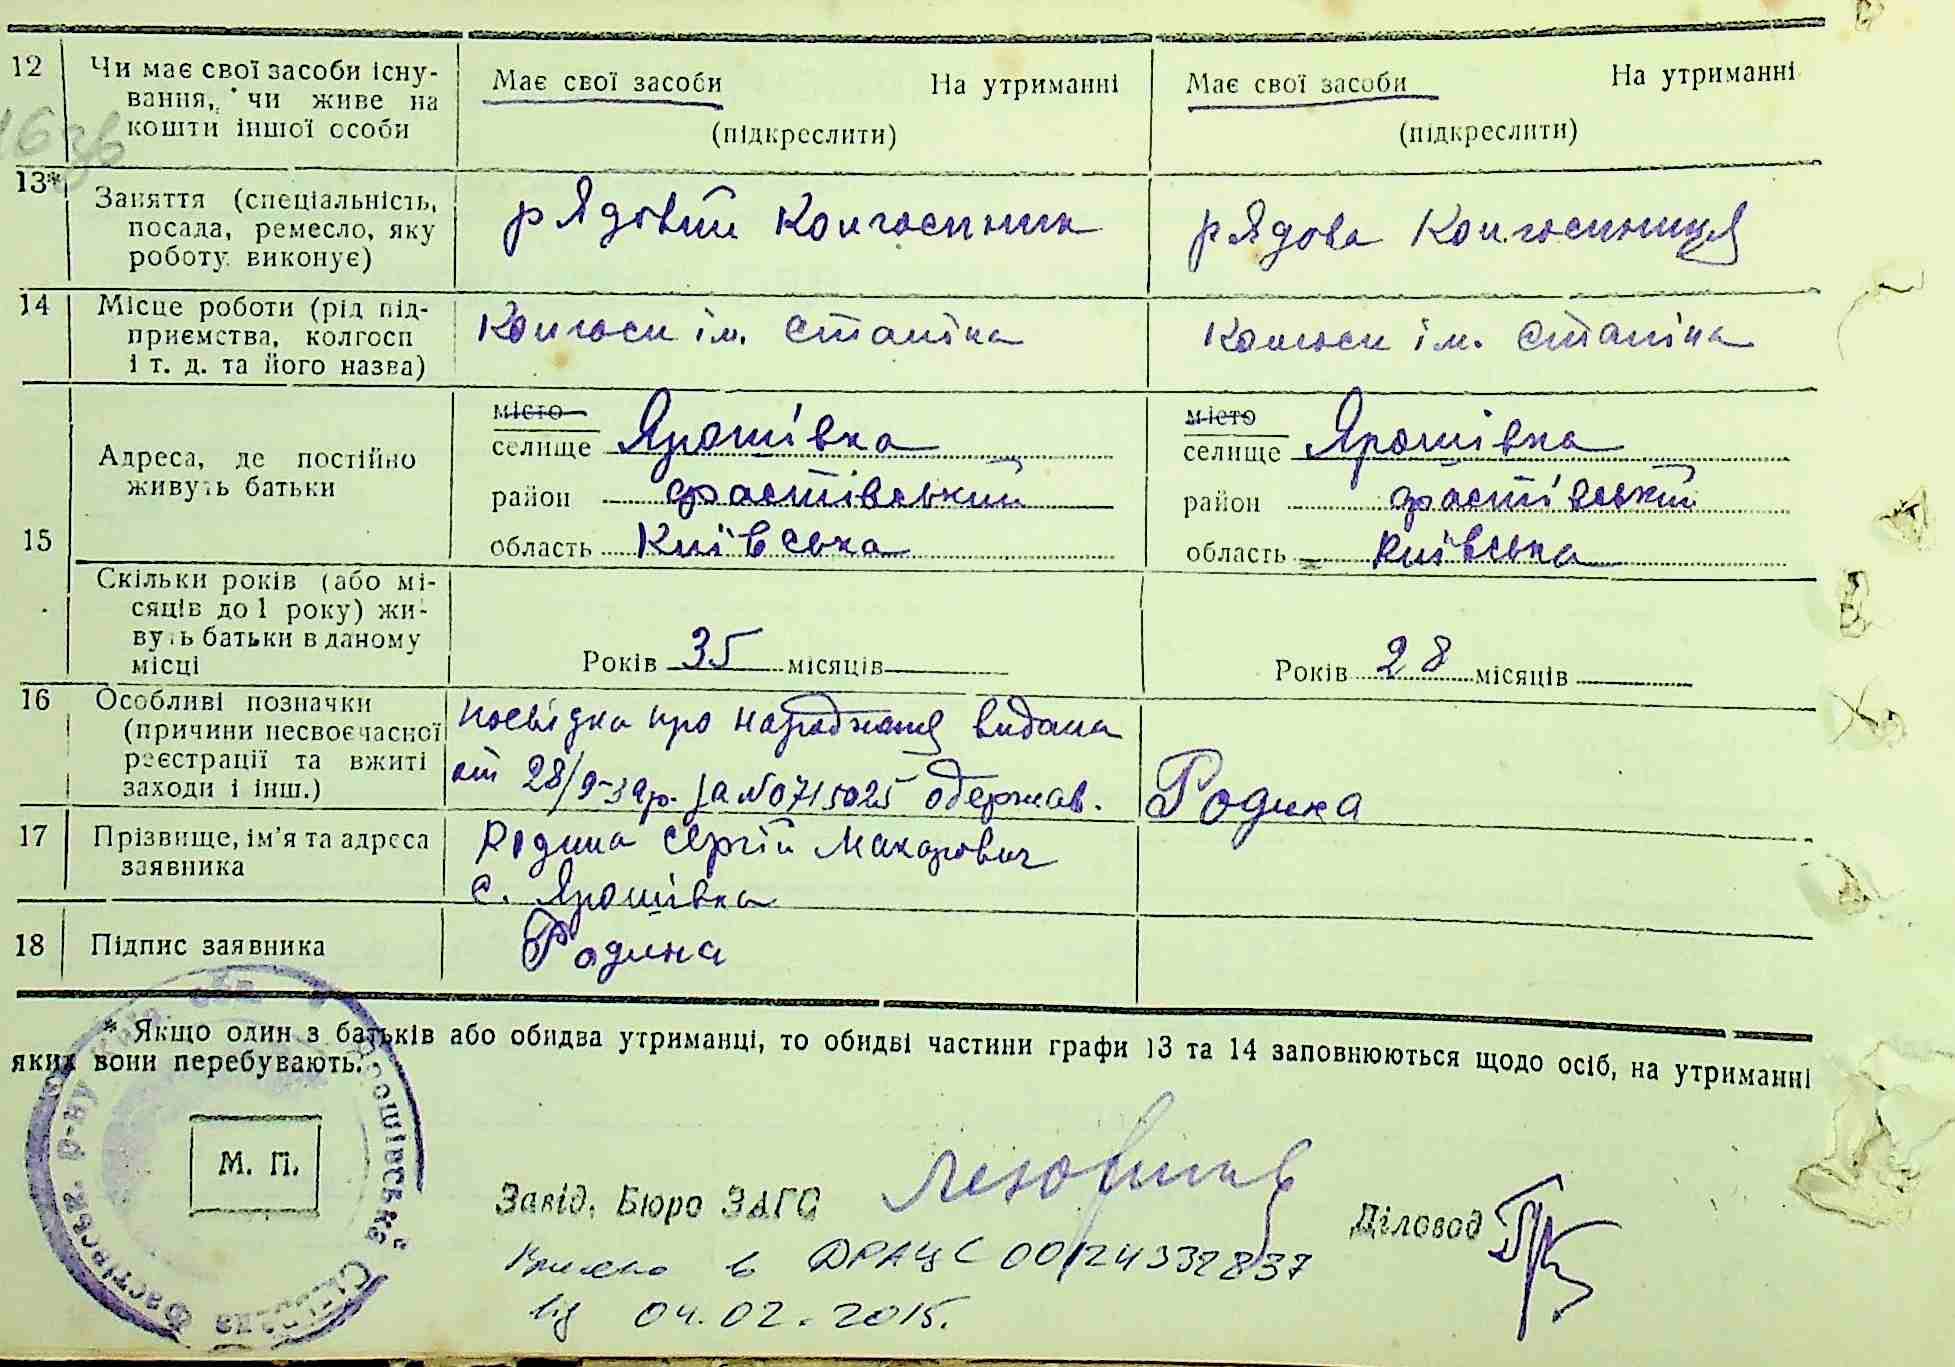 12 Чи має свої засоби існу-
вання, чи живе на
кошти іншої особи
Має свої засоби На утриманні
(підкреслити)
Має свої засоби На утриманні
(підкреслити)
13* Заняття (спеціальність,
посада, ремесло, яку
роботу виконує)
рядовий колгоспник
рядова колгоспниця
14 Місце роботи (рід під-
приємства, колгосп
і т. д. та його назва)
Колгосп ім. Сталіна
Колгосп ім. Сталіна
15
Адреса, де постійно
живуть батьки
місто
селище Ярошівка
район Фастівський
область Київська
місто
селище Ярошівка
район Фастівський
область Київська
Скільки років (або мі-
сяців до 1 року) жи-
вуть батьки в даному
місці
Років 35 місяців
Років 28 місяців
16 Особливі позначки
(причини несвоєчасної
реєстрації та вжиті
заходи і інш.)
посвідка про народження видана
от 28/9-39р. за №0715025 одержав.
Родина
17 Прізвище, ім'я та адреса
заявника
Родина Сергій Макарович
с. Ярошівка
18 Підпис заявника
Родина
* Якщо один з батьків або обидва утриманці, то обидві частини графи 13 та 14 заповнюються щодо осіб, на утриманні
яких вони перебувають.
М. П.
Ярошівська Сільрада Фастівськ. р-ну обл.
Завід. Бюро ЗАГС
Діловод
в ДРАЦС 00124332837
від 04.02.2015.